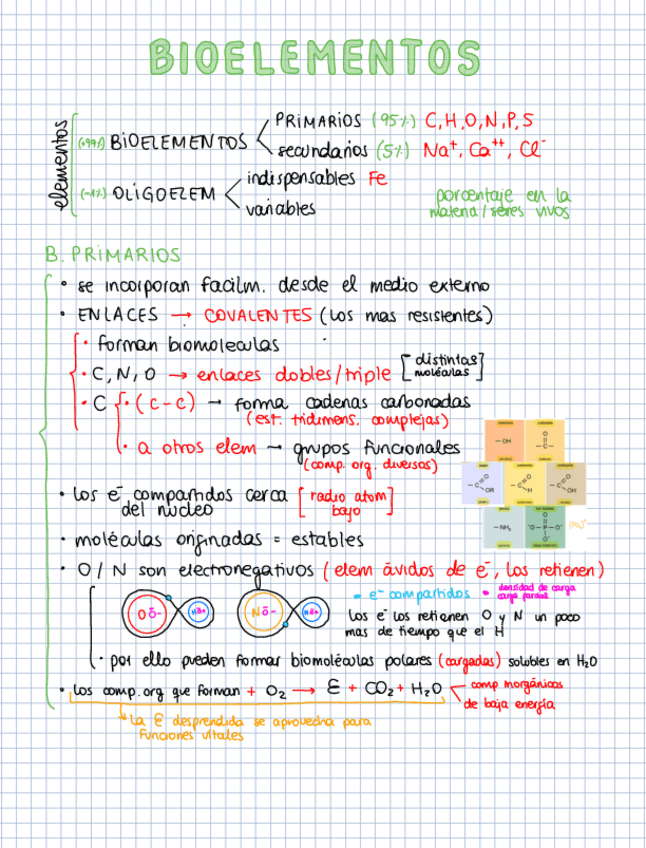 BIOELEMENTOS
elementos
(+99%) BIOELEMENTOS
PRIMARIOS (95%) C, H, O, N, P, S
secundarios (5%) Na⁺, Ca⁺⁺, Cl⁻
(-1%) OLIGOELEM
indispensables Fe
variables
porcentaje en la
materia/seres vivos
B. PRIMARIOS
• se incorporan facilm. desde el medio externo
• ENLACES → COVALENTES (los mas resistentes)
• forman biomoleculas
• C, N, O → enlaces dobles/triple [distintas
moléculas]
• C • (C-C) → forma cadenas carbonadas
(est. tridimens. complejas)
• a otros elem → grupos funcionales
(comp. org. diversos)
-OH
-C-
O
-C
O
OR
-C
O
H
-C
O
OH
-NH₂
O
⁻O-P-O⁻
O
• los e⁻ compartidos cerca [radio atom
del núcleo bajo]
• moléculas originadas = estables
• O/N son electronegativos (elem ávidos de e⁻, los retienen)
• e⁻ compartidos • densidad de carga
carga parcial
O δ- H δ+ N δ- H δ+
los e⁻ los retienen O y N un poco
mas de tiempo que el H
• por ello pueden formar biomoléculas polares (cargadas) solubles en H₂O
• los comp. org que forman + O₂ → E + CO₂ + H₂O
comp inorgánicos
de baja energía
la E desprendida se aprovecha para
funciones vitales